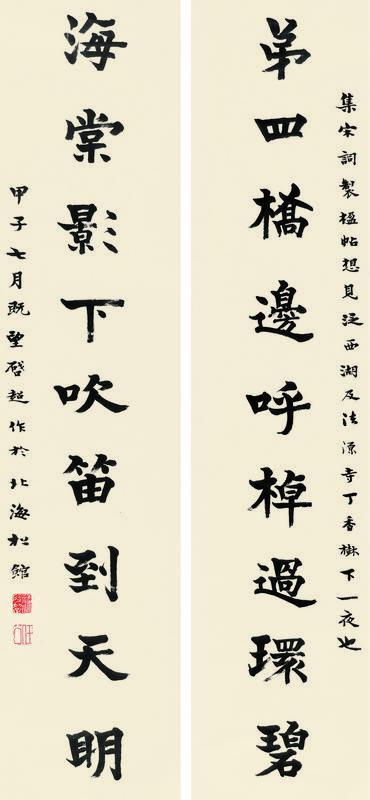 集宋詞製楹帖想見泛西湖及法源寺丁香樹下一夜也
弟四橋邊呼棹過環碧
海棠影下吹笛到天明
甲子七月既望啓超作於北海松館